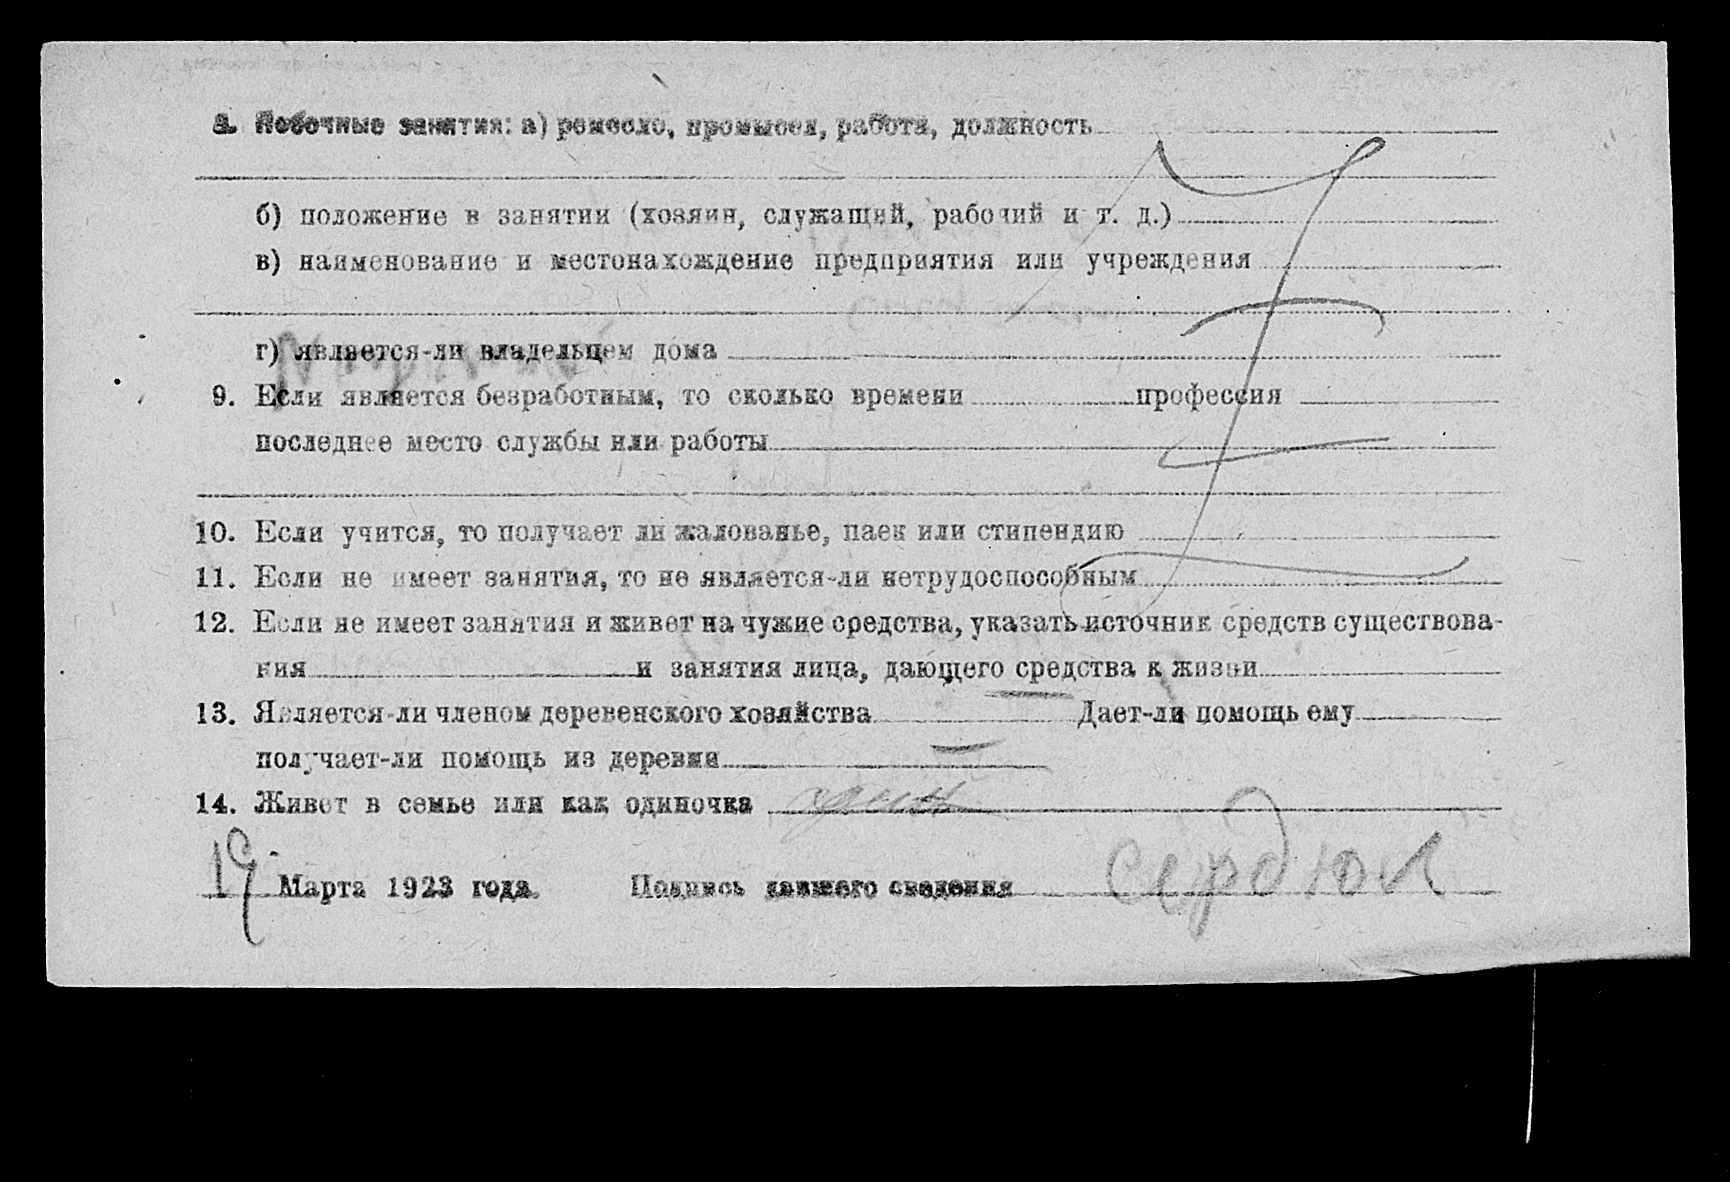 8. Побочные занятия: а) ремесло, промысел, работа, должность
б) положение в занятии (хозяин, служащий, рабочий и т. д.)
в) наименование и местонахождение предприятия или учреждения
г) является-ли владельцем дома
9. Если является безработным, то сколько времени профессия
последнее место службы или работы
10. Если учится, то получает ли жалованье, паек или стипендию
11. Если не имеет занятия, то не является-ли нетрудоспособным
12. Если не имеет занятия и живет на чужие средства, указать источник средств существова-
ния и занятия лица, дающего средства к жизни
13. Является-ли членом деревенского хозяйства — Дает-ли помощь ему
получает-ли помощь из деревни —
14. Живет в семье или как одиночка один
19 Марта 1923 года. Подпись давшего сведения Сердюк